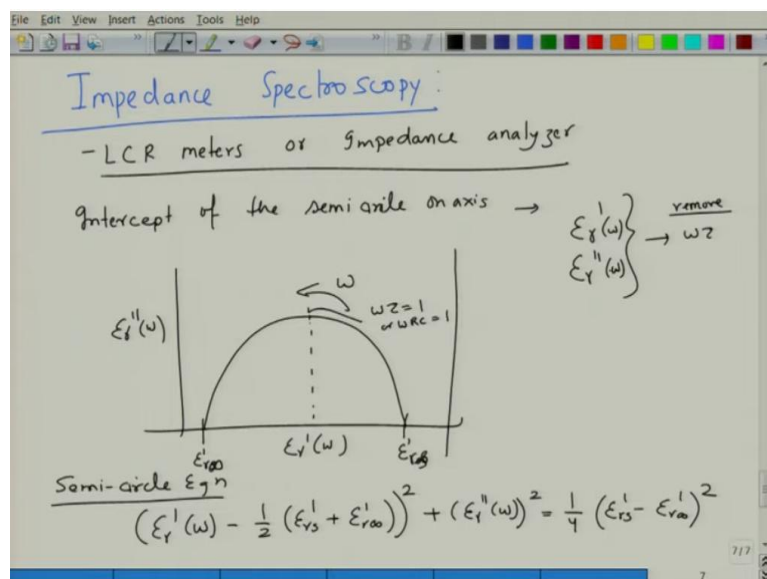 File Edit View Insert Actions Tools Help
Impedance Spectroscopy:
- LCR meters or Impedance analyzer
Intercept of the semi circle on axis →
εr'(ω)
εr''(ω)
→ remove
ωτ
ω
ωτ=1
or ωRC=1
εr''(ω)
ε'r∞
εr'(ω)
ε'rs
Semi-circle Eqn
(εr'(ω) - 1/2 (ε'rs + ε'r∞))² + (εr''(ω))² = 1/4 (ε'rs - ε'r∞)²
7/7